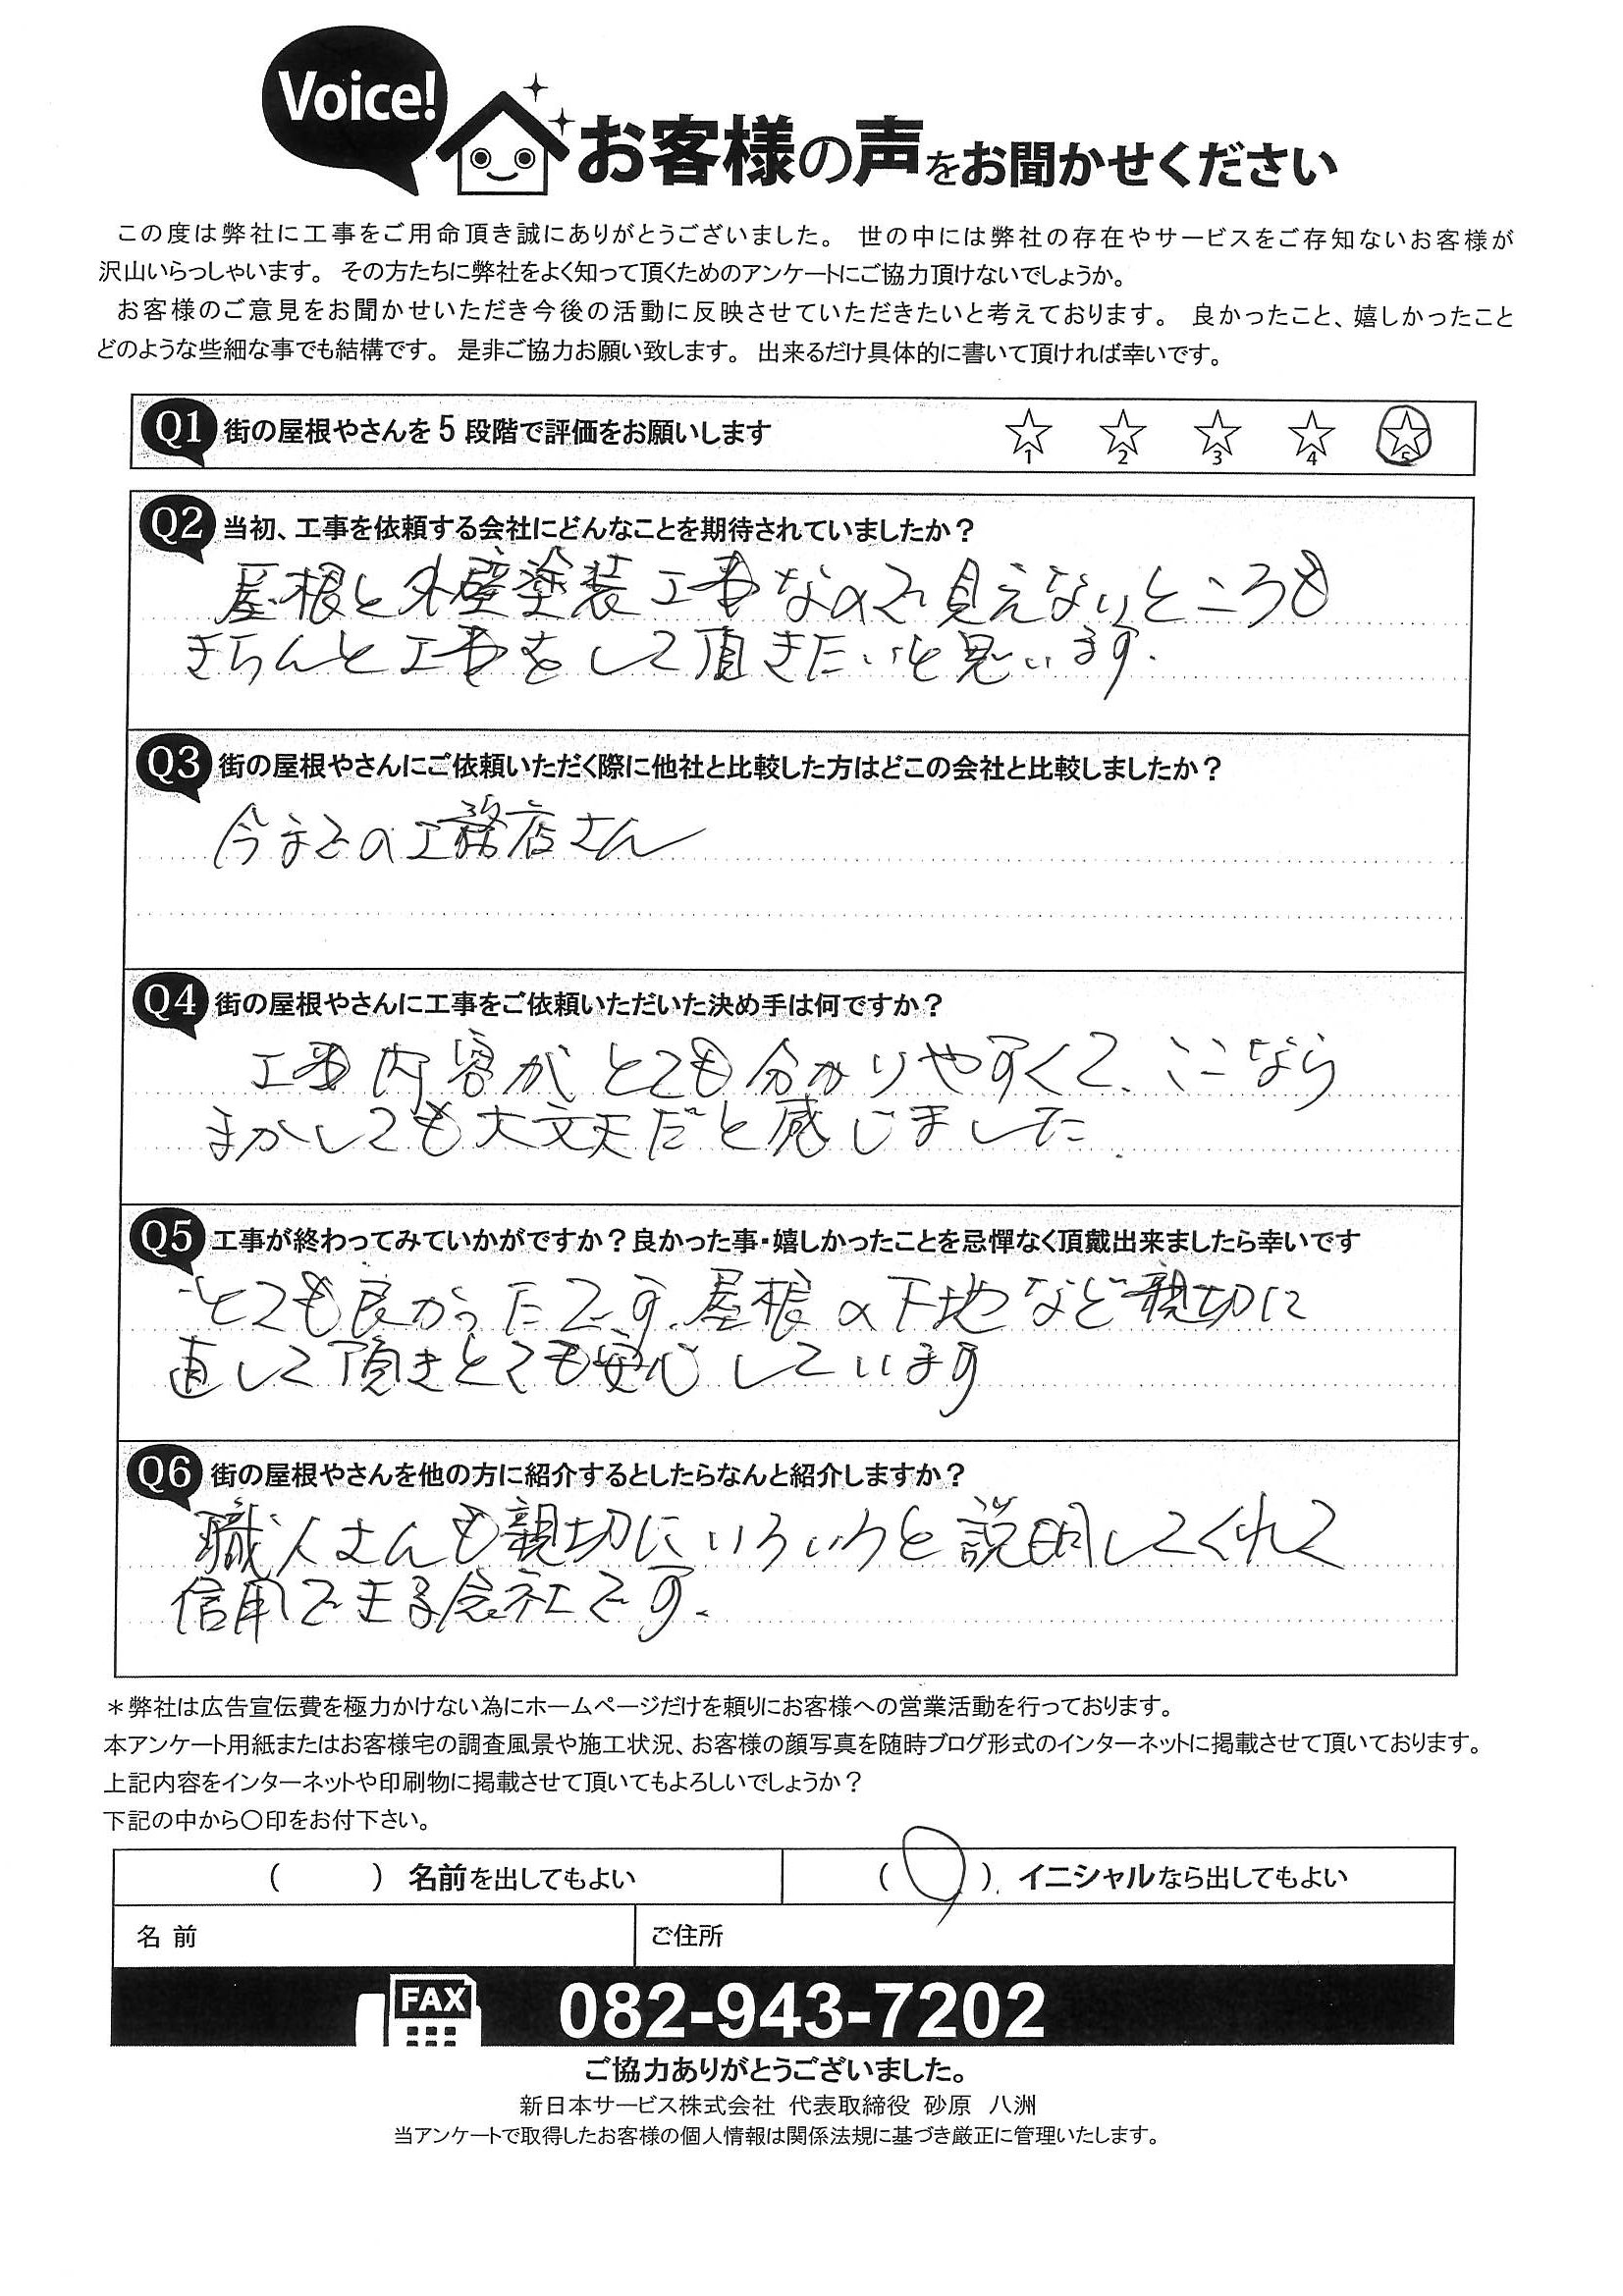 Voice!
お客様の声をお聞かせください
この度は弊社に工事をご用命頂き誠にありがとうございました。 世の中には弊社の存在やサービスをご存知ないお客様が
沢山いらっしゃいます。 その方たちに弊社をよく知って頂くためのアンケートにご協力頂けないでしょうか。
お客様のご意見をお聞かせいただき今後の活動に反映させていただきたいと考えております。 良かったこと、嬉しかったこと
どのような些細な事でも結構です。 是非ご協力お願い致します。 出来るだけ具体的に書いて頂ければ幸いです。
Q1 街の屋根やさんを5段階で評価をお願いします ☆1 ☆2 ☆3 ☆4 ☆5
Q2 当初、工事を依頼する会社にどんなことを期待されていましたか?
屋根と外壁塗装工事なので見えないところも
きちんと工事をして頂きたいと思います.
Q3 街の屋根やさんにご依頼いただく際に他社と比較した方はどこの会社と比較しましたか?
今までの工務店さん
Q4 街の屋根やさんに工事をご依頼いただいた決め手は何ですか?
工事内容がとても分かりやすくて、ここなら
まかしても大丈夫だと感じました.
Q5 工事が終わってみていかがですか?良かった事・嬉しかったことを忌憚なく頂戴出来ましたら幸いです
とても良かったです.屋根の下地など親切に
直して頂きとても安心しています
Q6 街の屋根やさんを他の方に紹介するとしたらなんと紹介しますか?
職人さんも親切にいろいろと説明してくれて
信用できる会社です.
＊弊社は広告宣伝費を極力かけない為にホームページだけを頼りにお客様への営業活動を行っております。
本アンケート用紙またはお客様宅の調査風景や施工状況、お客様の顔写真を随時ブログ形式のインターネットに掲載させて頂いております。
上記内容をインターネットや印刷物に掲載させて頂いてもよろしいでしょうか?
下記の中から〇印をお付下さい。
( ) 名前を出してもよい (○) イニシャルなら出してもよい
名 前 ご住所
FAX 082-943-7202
ご協力ありがとうございました。
新日本サービス株式会社 代表取締役 砂原 八洲
当アンケートで取得したお客様の個人情報は関係法規に基づき厳正に管理いたします。